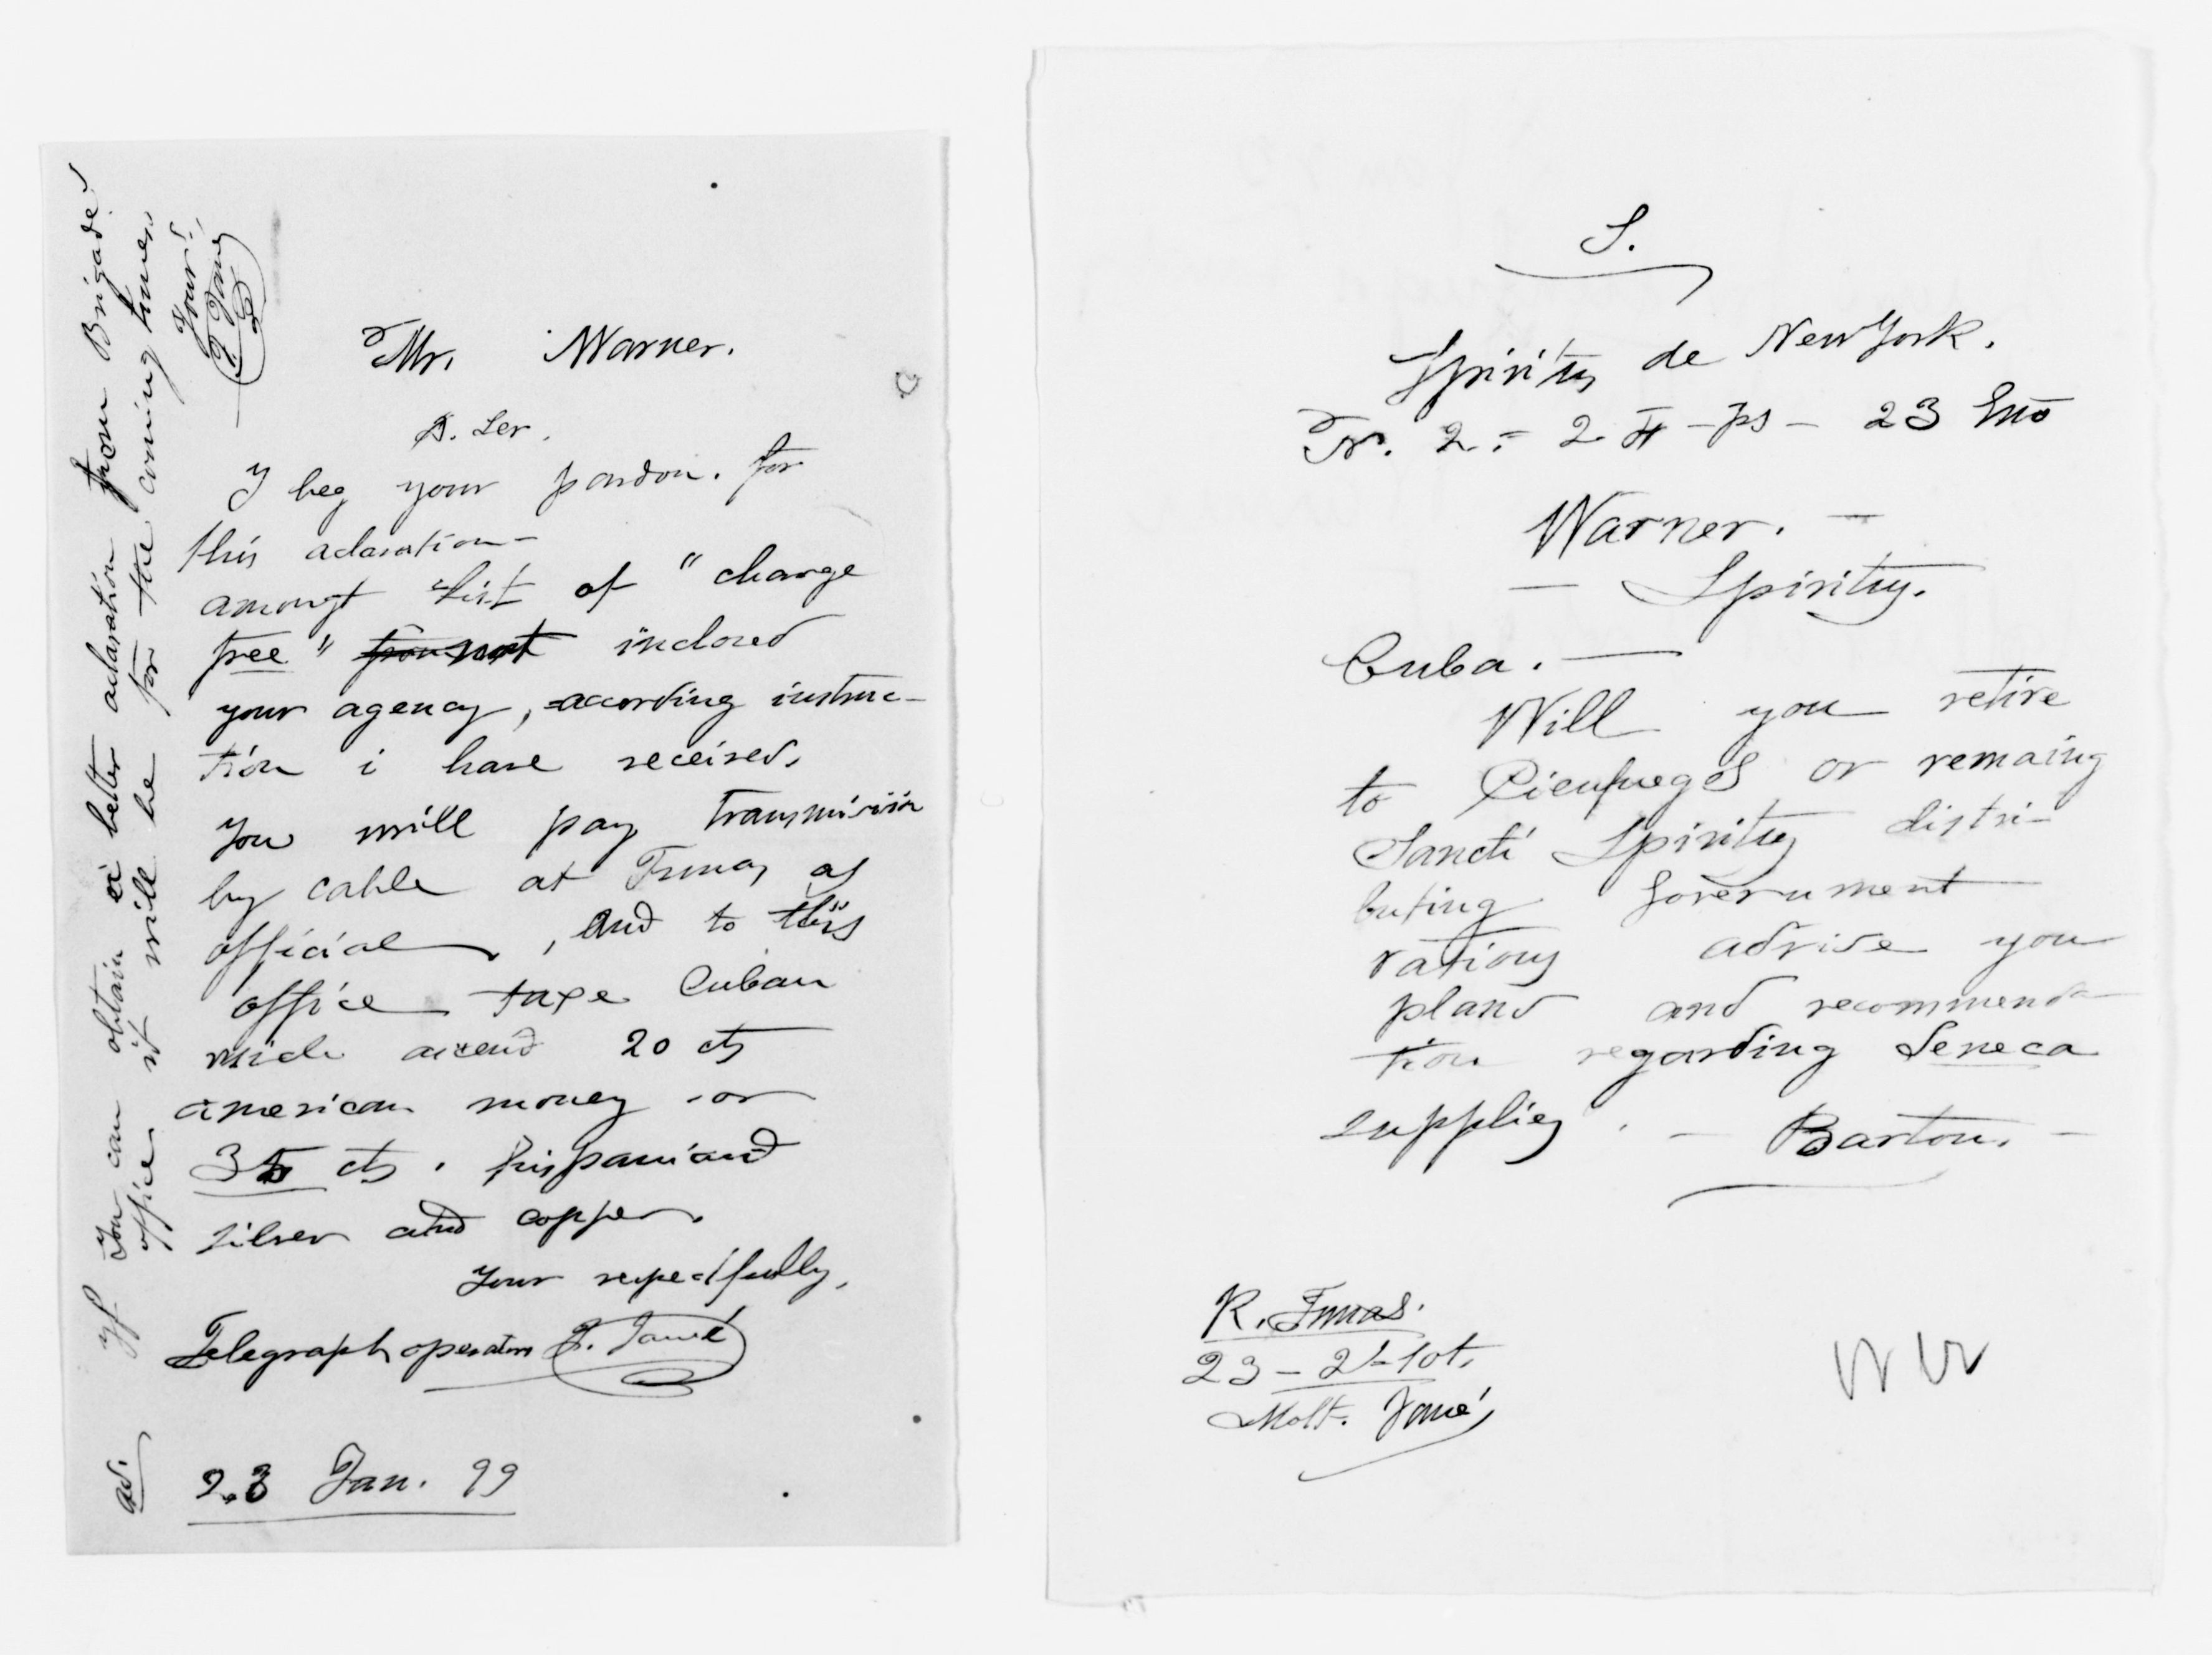 Mr. Warner.
D. Ser.
I beg your pardon. for
this aclaration -
amongt list of "charge
free" inclosed
your agency, according instruc-
tion i have received.
You will pay transmission
by cable at Tunas as
official, and to this
office taxe Cuban
wich ascend 20 cts
american money or
35 cts. hispaniand
silver and copper.
Your respectfully,
Telegraph operator J. Jané
23 Jan. 99
ad. If you can obtain a better aclaration from Brigade
office it will be for the coming times.
Your,
J. Jané
S.
Spiritus de New York.
Tr. 2 = 2 - ps - 23 Eno
Warner. -
- Spiritus.
Cuba. -
Will you retire
to Cienfuegos or remaing
Sancti Spiritus distri-
buting Government
rations advise you
pland and recommenda-
tion regarding Seneca
supplies. - Barton. -
R. Tunas.
23 - 2 - 10t.
Molt. Jané